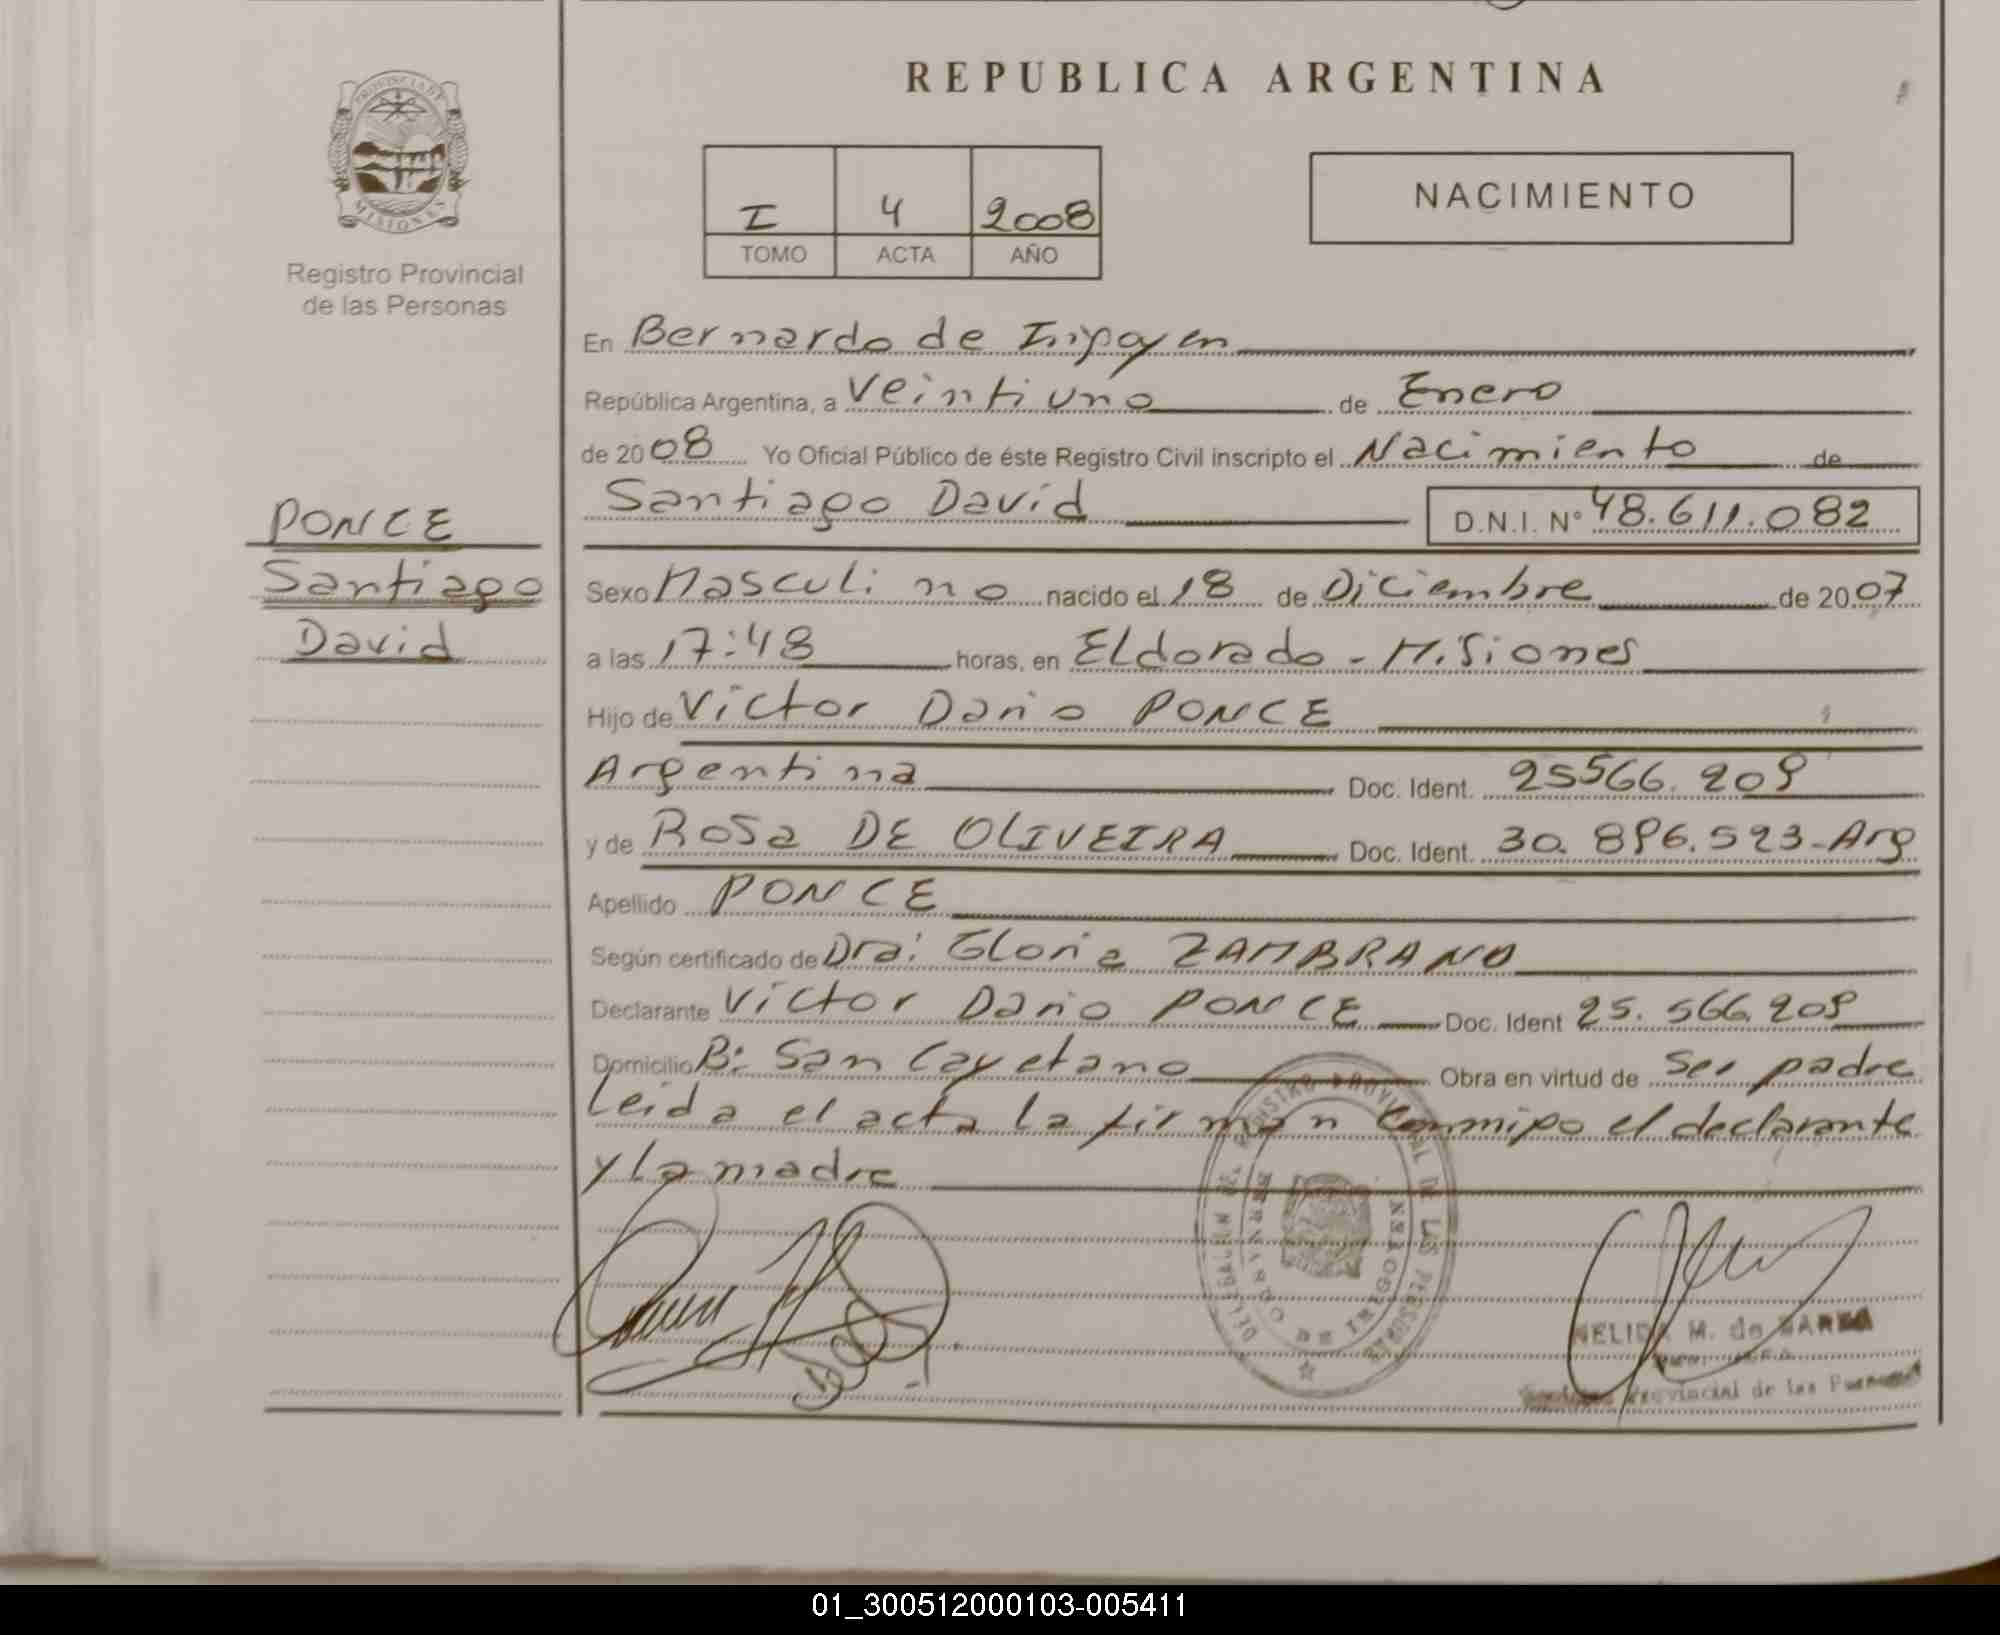 REPUBLICA ARGENTINA
PROVINCIA DE
MISIONES
Registro Provincial
de las Personas
I 4 2008
TOMO ACTA AÑO
NACIMIENTO
En Bernardo de Irigoyen
República Argentina, a Veintiuno de Enero
de 2008 Yo Oficial Público de éste Registro Civil inscripto el Nacimiento de
Santiago David D.N.I. Nº 48.611.082
PONCE
Santiago
David
Sexo Masculino nacido el 18 de Diciembre de 2007
a las 17:48 horas, en Eldorado - Misiones
Hijo de Victor Dario PONCE
Argentina Doc. Ident. 25566.209
y de Rosa DE OLIVEIRA Doc. Ident. 30.896.523-Arg
Apellido PONCE
Según certificado de Dra: Gloria ZAMBRANO
Declarante Victor Dario PONCE Doc. Ident 25.566.209
Domicilio B: San Cayetano Obra en virtud de Ser padre
Leida el acta la firman conmigo el declarante
y la madre
DELEGACION DEL REGISTRO PROVINCIAL DE LAS PERSONAS
BERNARDO DE IRIGOYEN
NELIDA M. de
Provincial de las
01_300512000103-005411